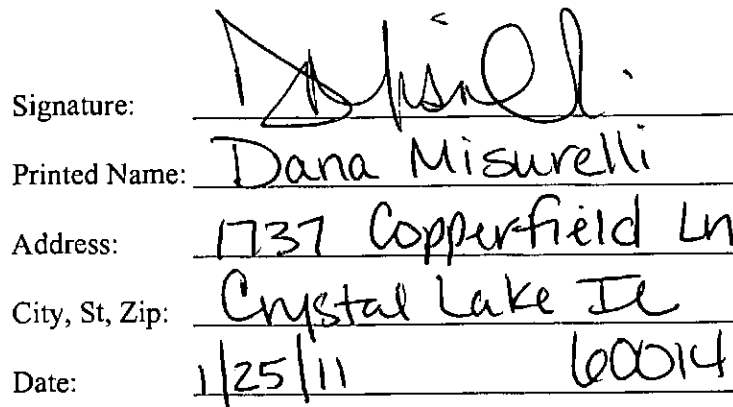 Signature:
Printed Name: Dana Misurelli
Address: 1737 Copperfield Ln
City, St, Zip: Crystal Lake IL
Date: 1/25/11 60014